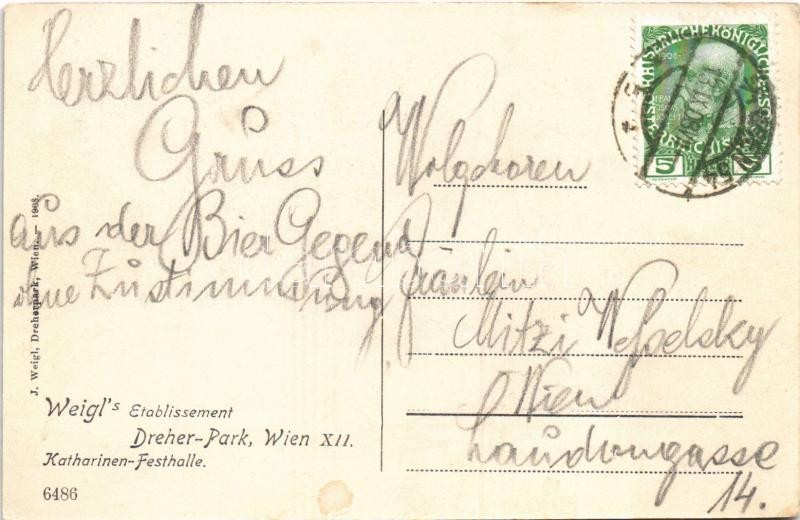 Herzlichen
Gruss
aus der Bier Gegend
ohne Zustimmerung
Wolgeboren
Fräulein
Mitzi Weselsky
Wien
Laudongasse
14.
J. Weigl, Dreherpark, Wien. — 1908.
Weigl's Etablissement
Dreher-Park, Wien XII.
Katharinen-Festhalle.
6486
1908
5 5